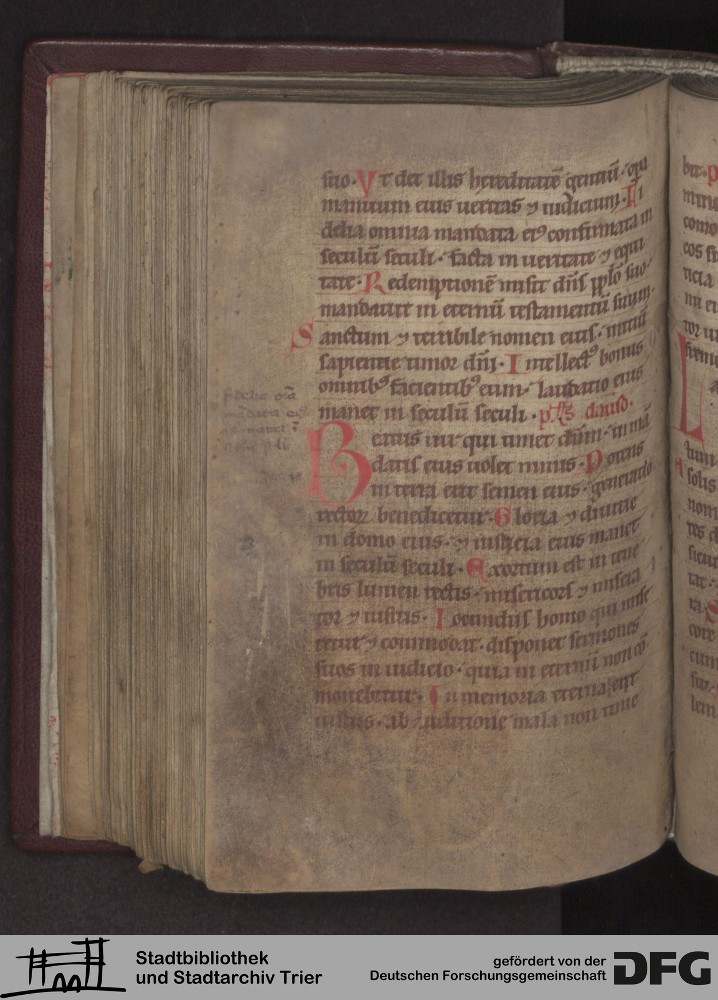 suo· Vt det illis hereditatē gentiū· opa
manuum eius ueritas ⁊ iudicium· Fi
delia omnia mandata eiꝰ confirmata in
seculū seculi· facta in ueritate ⁊ equi
tate· Redemptionē misit dn̄s pplō suo·
mandauit in eternū testamentū suum·
Sanctum ⁊ terribile nomen eius· initiū
sapientie timor dn̄i· Intellectꝰ bonus
omnibꝰ facientibꝰ eum· laudatio eius
manet in seculū seculi· pſ̄s dauid·
Beatus uir qui timet dn̄m· in mā
datis eius uolet nimis· Potens
in terra erit semen eius· generatio
rectoꝝ benedicetur· Gloria ⁊ diuitie
in domo eius· ⁊ iusticia eius manet
in seculū seculi· Exortum est in tene
bris lumen rectis· misericors ⁊ misera
tor ⁊ iustus· Iocundus homo qui mise
retur ⁊ commodat· disponet sermones
suos in iudicio· quia in eternū non cō
mouebitur· In memoria eterna erit
iustus· ab auditione mala non time
Stadtbibliothek
und Stadtarchiv Trier
gefördert von der
Deutschen Forschungsgemeinschaft
DFG